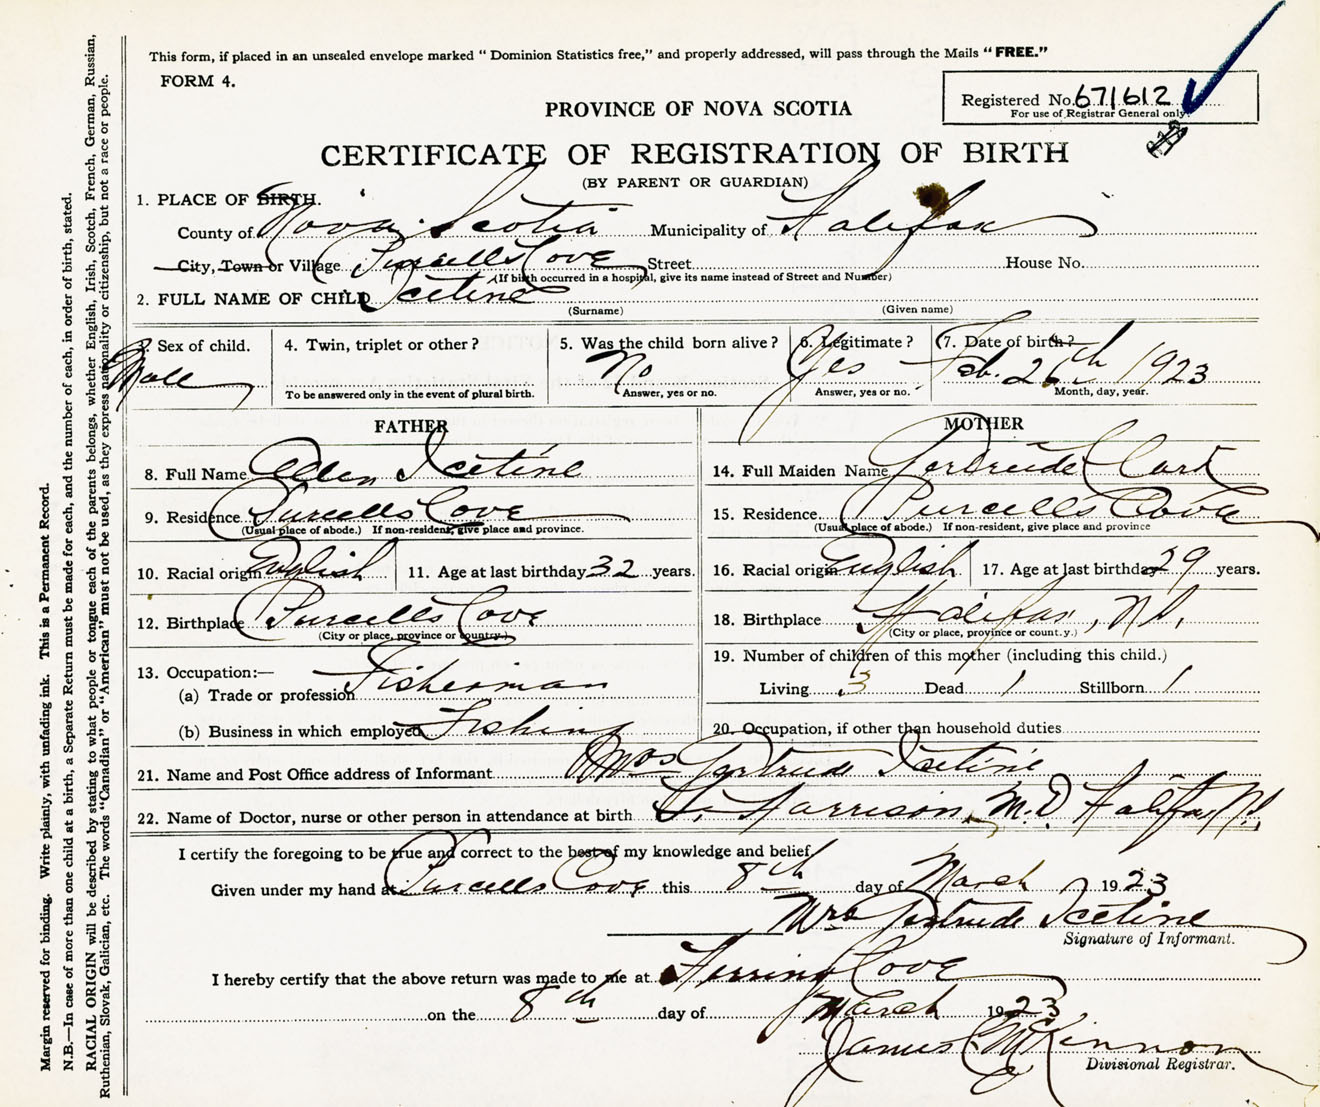 This form, if placed in an unsealed envelope marked " Dominion Statistics free," and properly addressed, will pass through the Mails "FREE."
FORM 4.
Registered No. 671612
For use of Registrar General only.
PROVINCE OF NOVA SCOTIA
CERTIFICATE OF REGISTRATION OF BIRTH
(BY PARENT OR GUARDIAN)
1. PLACE OF BIRTH.
County of Nova Scotia Municipality of Halifax
City, Town or Village Purcells Cove Street House No.
(If birth occurred in a hospital, give its name instead of Street and Number)
2. FULL NAME OF CHILD Icetine
(Surname) (Given name)
3. Sex of child. 4. Twin, triplet or other? 5. Was the child born alive? 6. Legitimate? 7. Date of birth?
Male No Yes Feb. 26th 1923
To be answered only in the event of plural birth. Answer, yes or no. Answer, yes or no. Month, day, year.
FATHER
8. Full Name Allen Icetine
9. Residence Purcells Cove
(Usual place of abode.) If non-resident, give place and province.
10. Racial origin English 11. Age at last birthday 32 years.
12. Birthplace Purcells Cove
(City or place, province or country.)
13. Occupation:—
(a) Trade or profession Fisherman
(b) Business in which employed Fishing
MOTHER
14. Full Maiden Name Gertrude Clark
15. Residence Purcells Cove
(Usual place of abode.) If non-resident, give place and province
16. Racial origin English 17. Age at last birthday 29 years.
18. Birthplace Halifax, N.S.
(City or place, province or count.y.)
19. Number of children of this mother (including this child.)
Living 3 Dead 1 Stillborn 1
20. Occupation, if other than household duties
21. Name and Post Office address of Informant Mrs Gertrude Icetine
22. Name of Doctor, nurse or other person in attendance at birth Harrison, M.D. Halifax N.S.
I certify the foregoing to be true and correct to the best of my knowledge and belief.
Given under my hand at Purcells Cove this 8th day of March 1923
Mrs Gertrude Icetine
Signature of Informant.
I hereby certify that the above return was made to me at Herring Cove
on the 8th day of March 1923
James C McKinnon
Divisional Registrar.
Margin reserved for binding. Write plainly, with unfading ink. This is a Permanent Record.
N.B.—In case of more than one child at a birth, a Separate Return must be made for each, and the number of each, in order of birth, stated.
RACIAL ORIGIN will be described by stating to what people or tongue each of the parents belongs, whether English, Irish, Scotch, French, German, Russian,
Ruthenian, Slovak, Galician, etc. The words "Canadian" or "American" must not be used, as they express nationality or citizenship, but not a race or people.